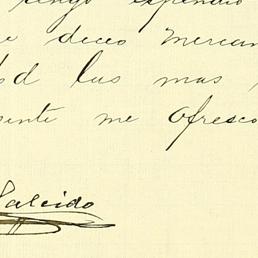 tengo espendio
e deceo mercan
d las mas
sente me ofresco
Salcido